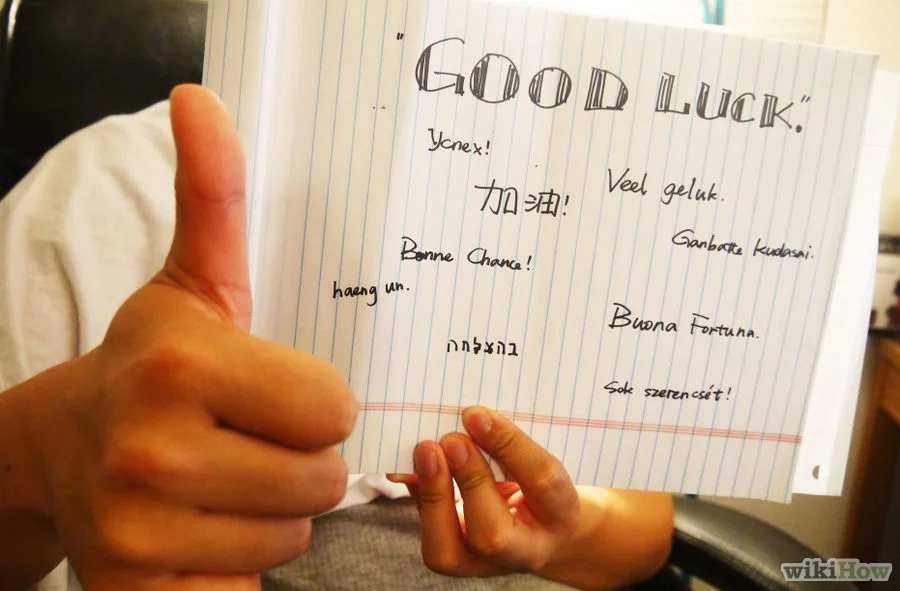 "GOOD LUCK."
Успех!
加油!
Veel geluk.
Ganbatte kudasai.
Bonne Chance!
haeng un.
Buona Fortuna.
בהצלחה
Sok szerencsét!
wikiHow